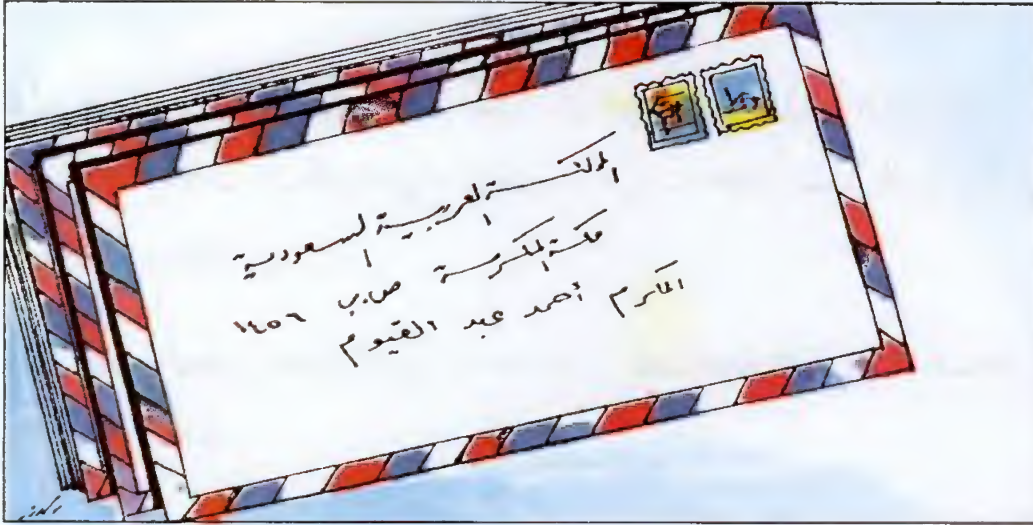 المملكة العربية السعودية
مكة المكرمة ص.ب ١٤٥٦
المكرم أحمد عبد القيوم